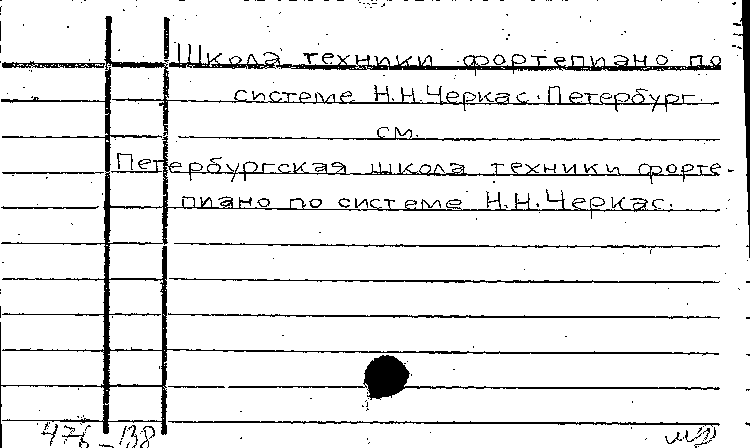 Школа техники фортепиано по
системе Н.Н.Черкас. Петербург.
см.
Петербургская школа техники форте-
пиано по системе Н.Н.Черкас.
476-138